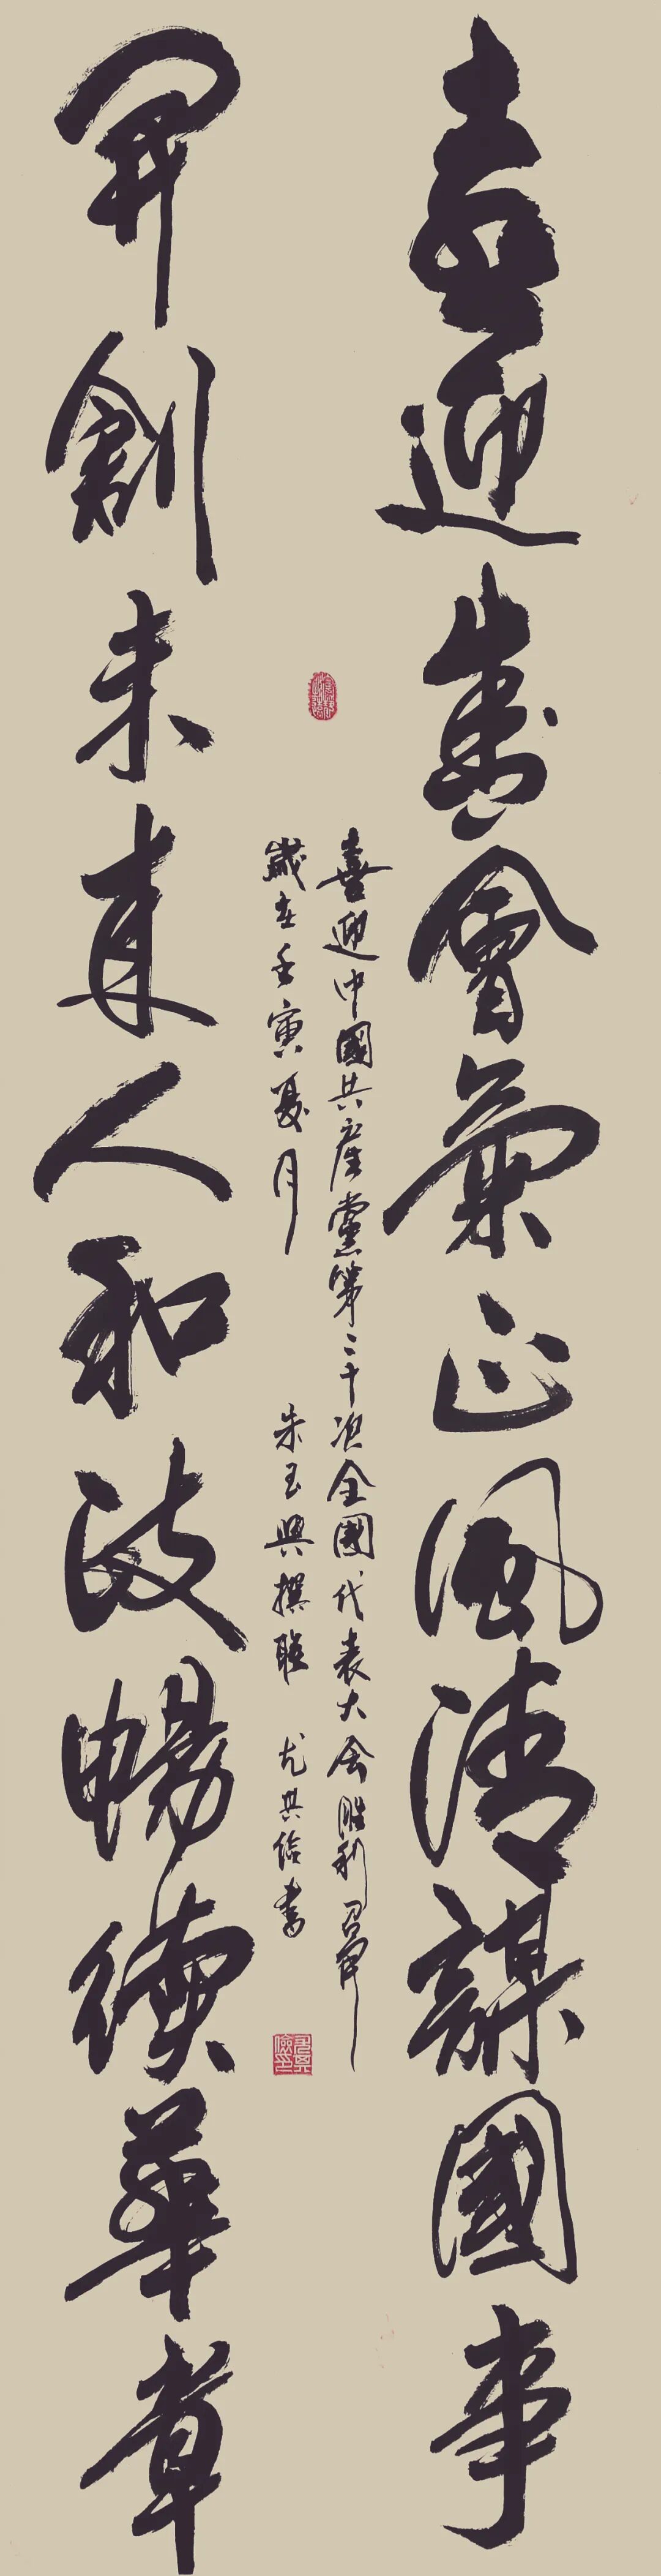 喜迎盛會氣正風清謀國事
喜迎中國共產黨第二十次全國代表大会勝利召開
歲在壬寅夏月 朱玉興撰聯 尤其儉書
開創未來人和政暢續華章